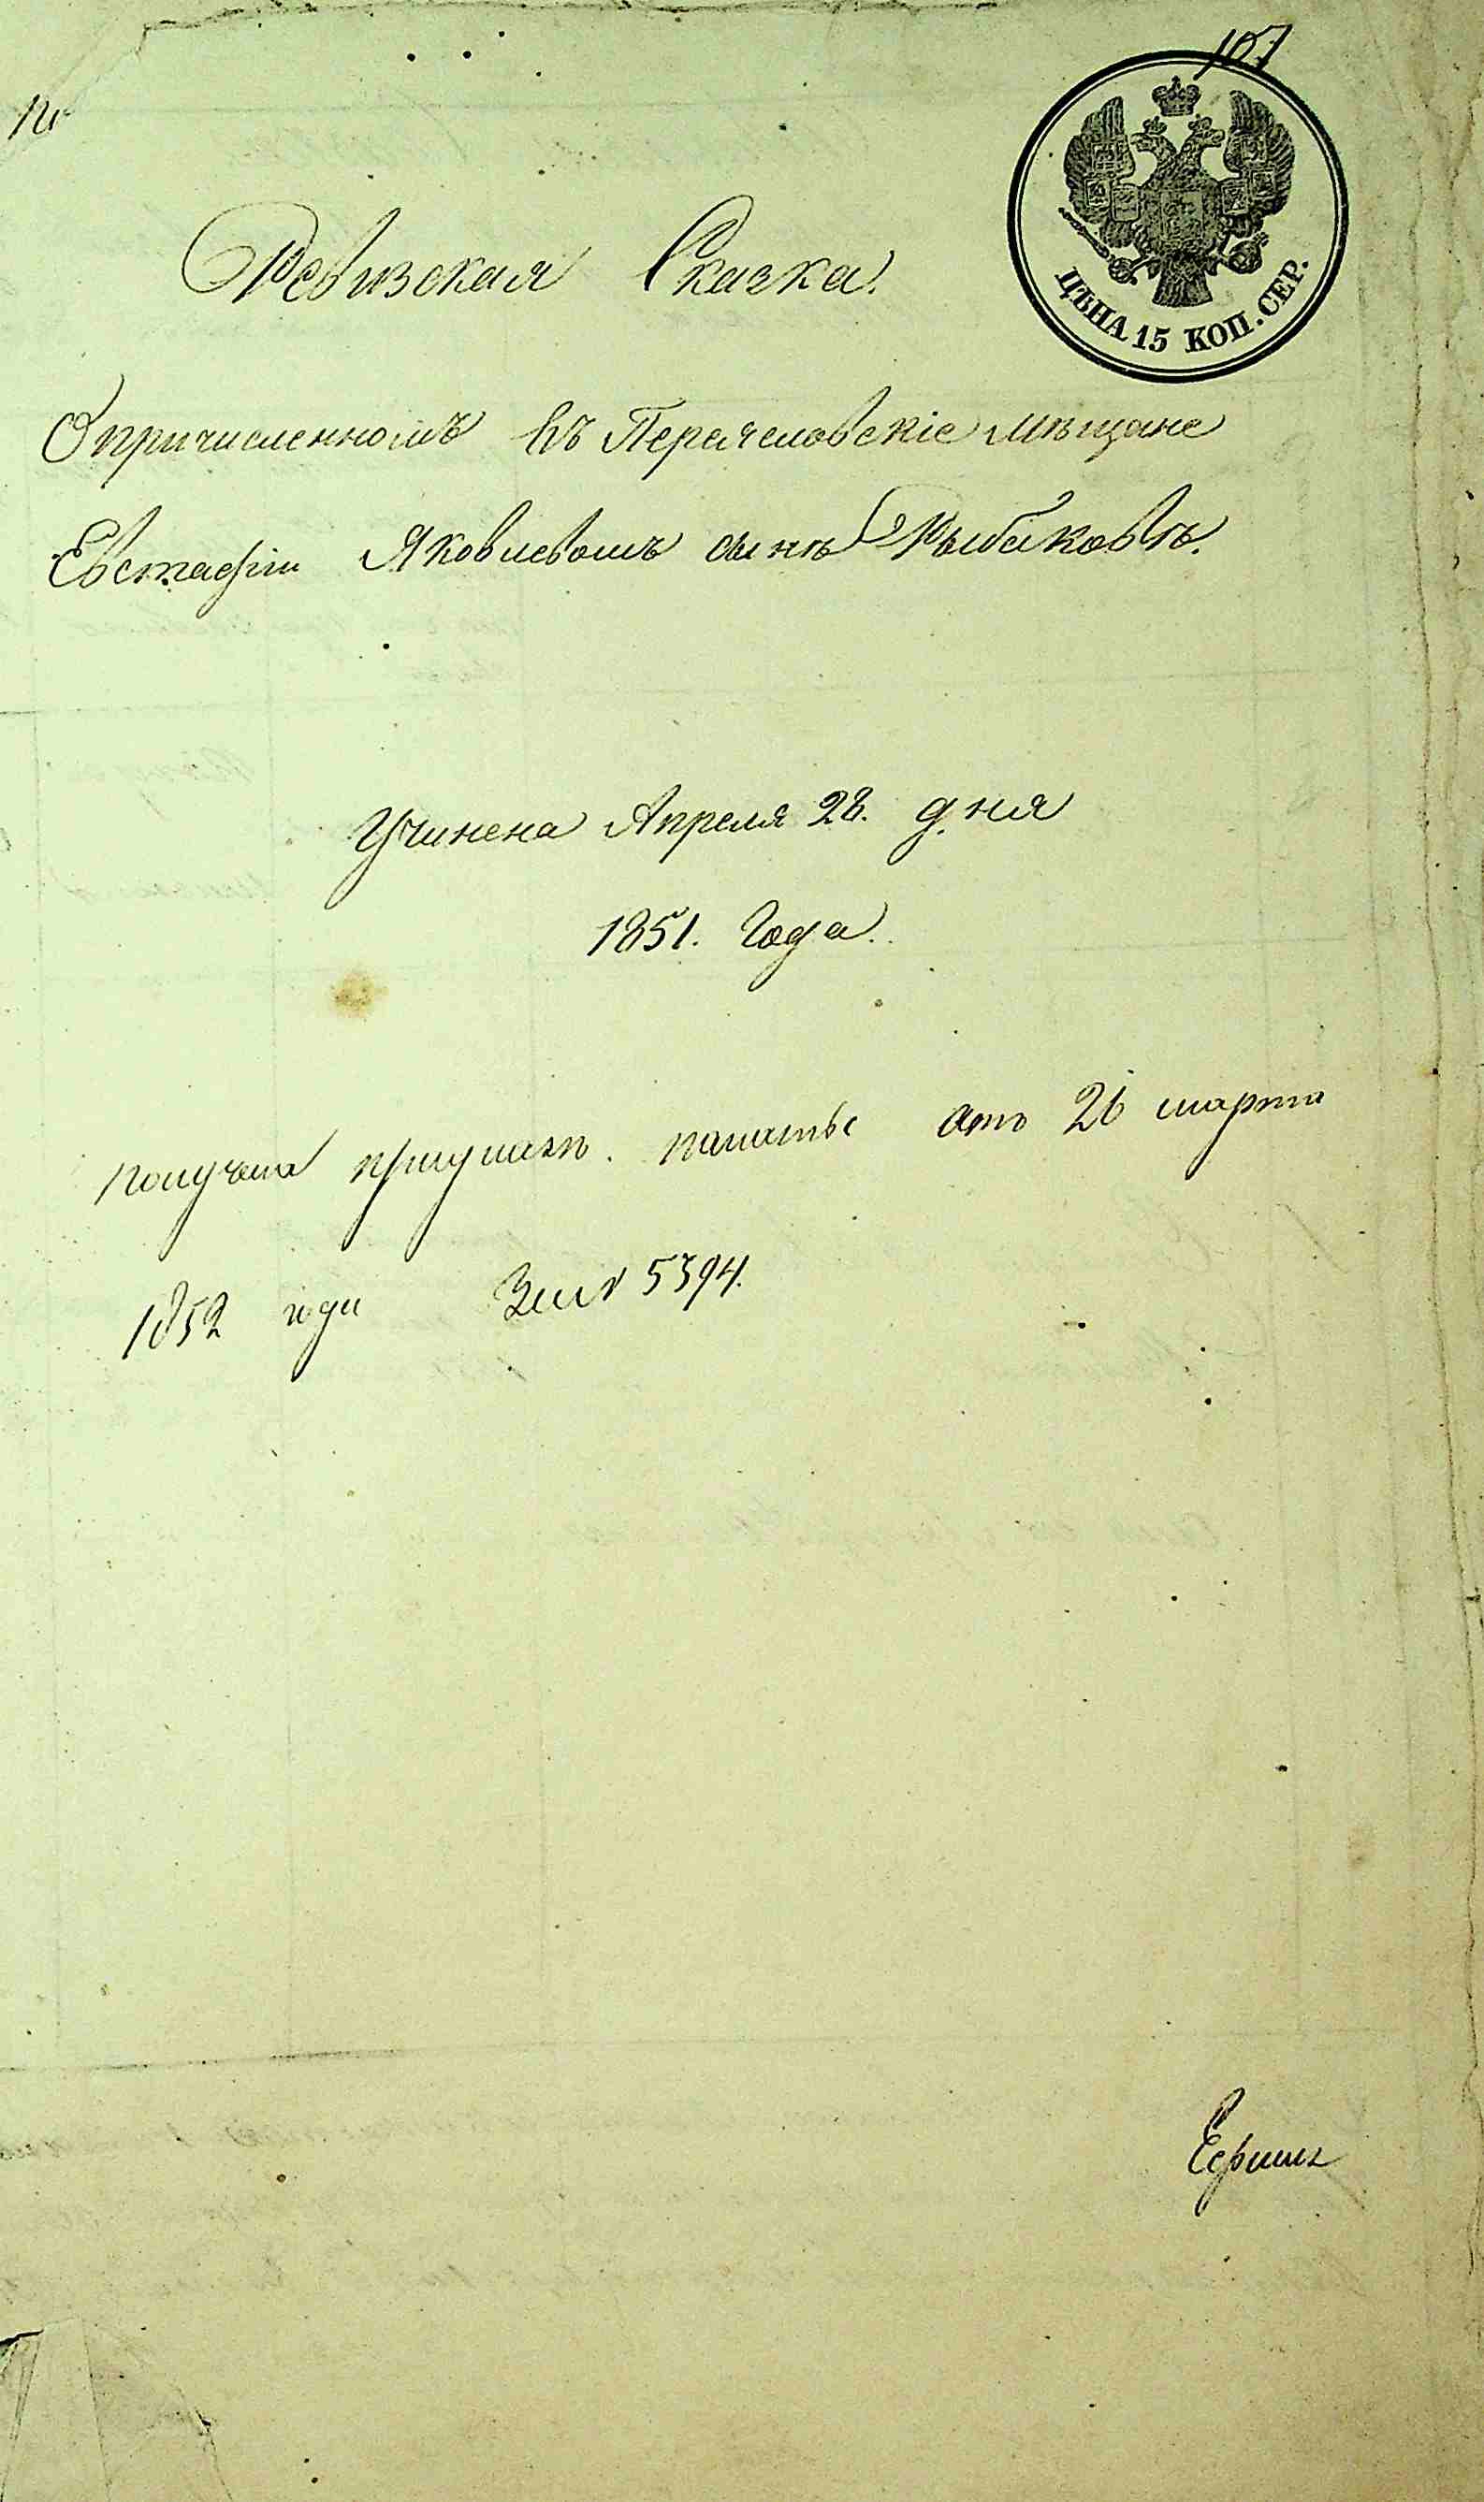 107
ЦѢНА 15 КОП. СЕР.
Ревизская Сказка.
О причисленномъ въ Переяславскіе мѣщане
Евстафіи Яковлевомъ сынѣ Рыбаковѣ.
Учинена Апреля 28. дня
1851. Года.
получена при указѣ палаты отъ 26 марта
1852 года За № 5394.